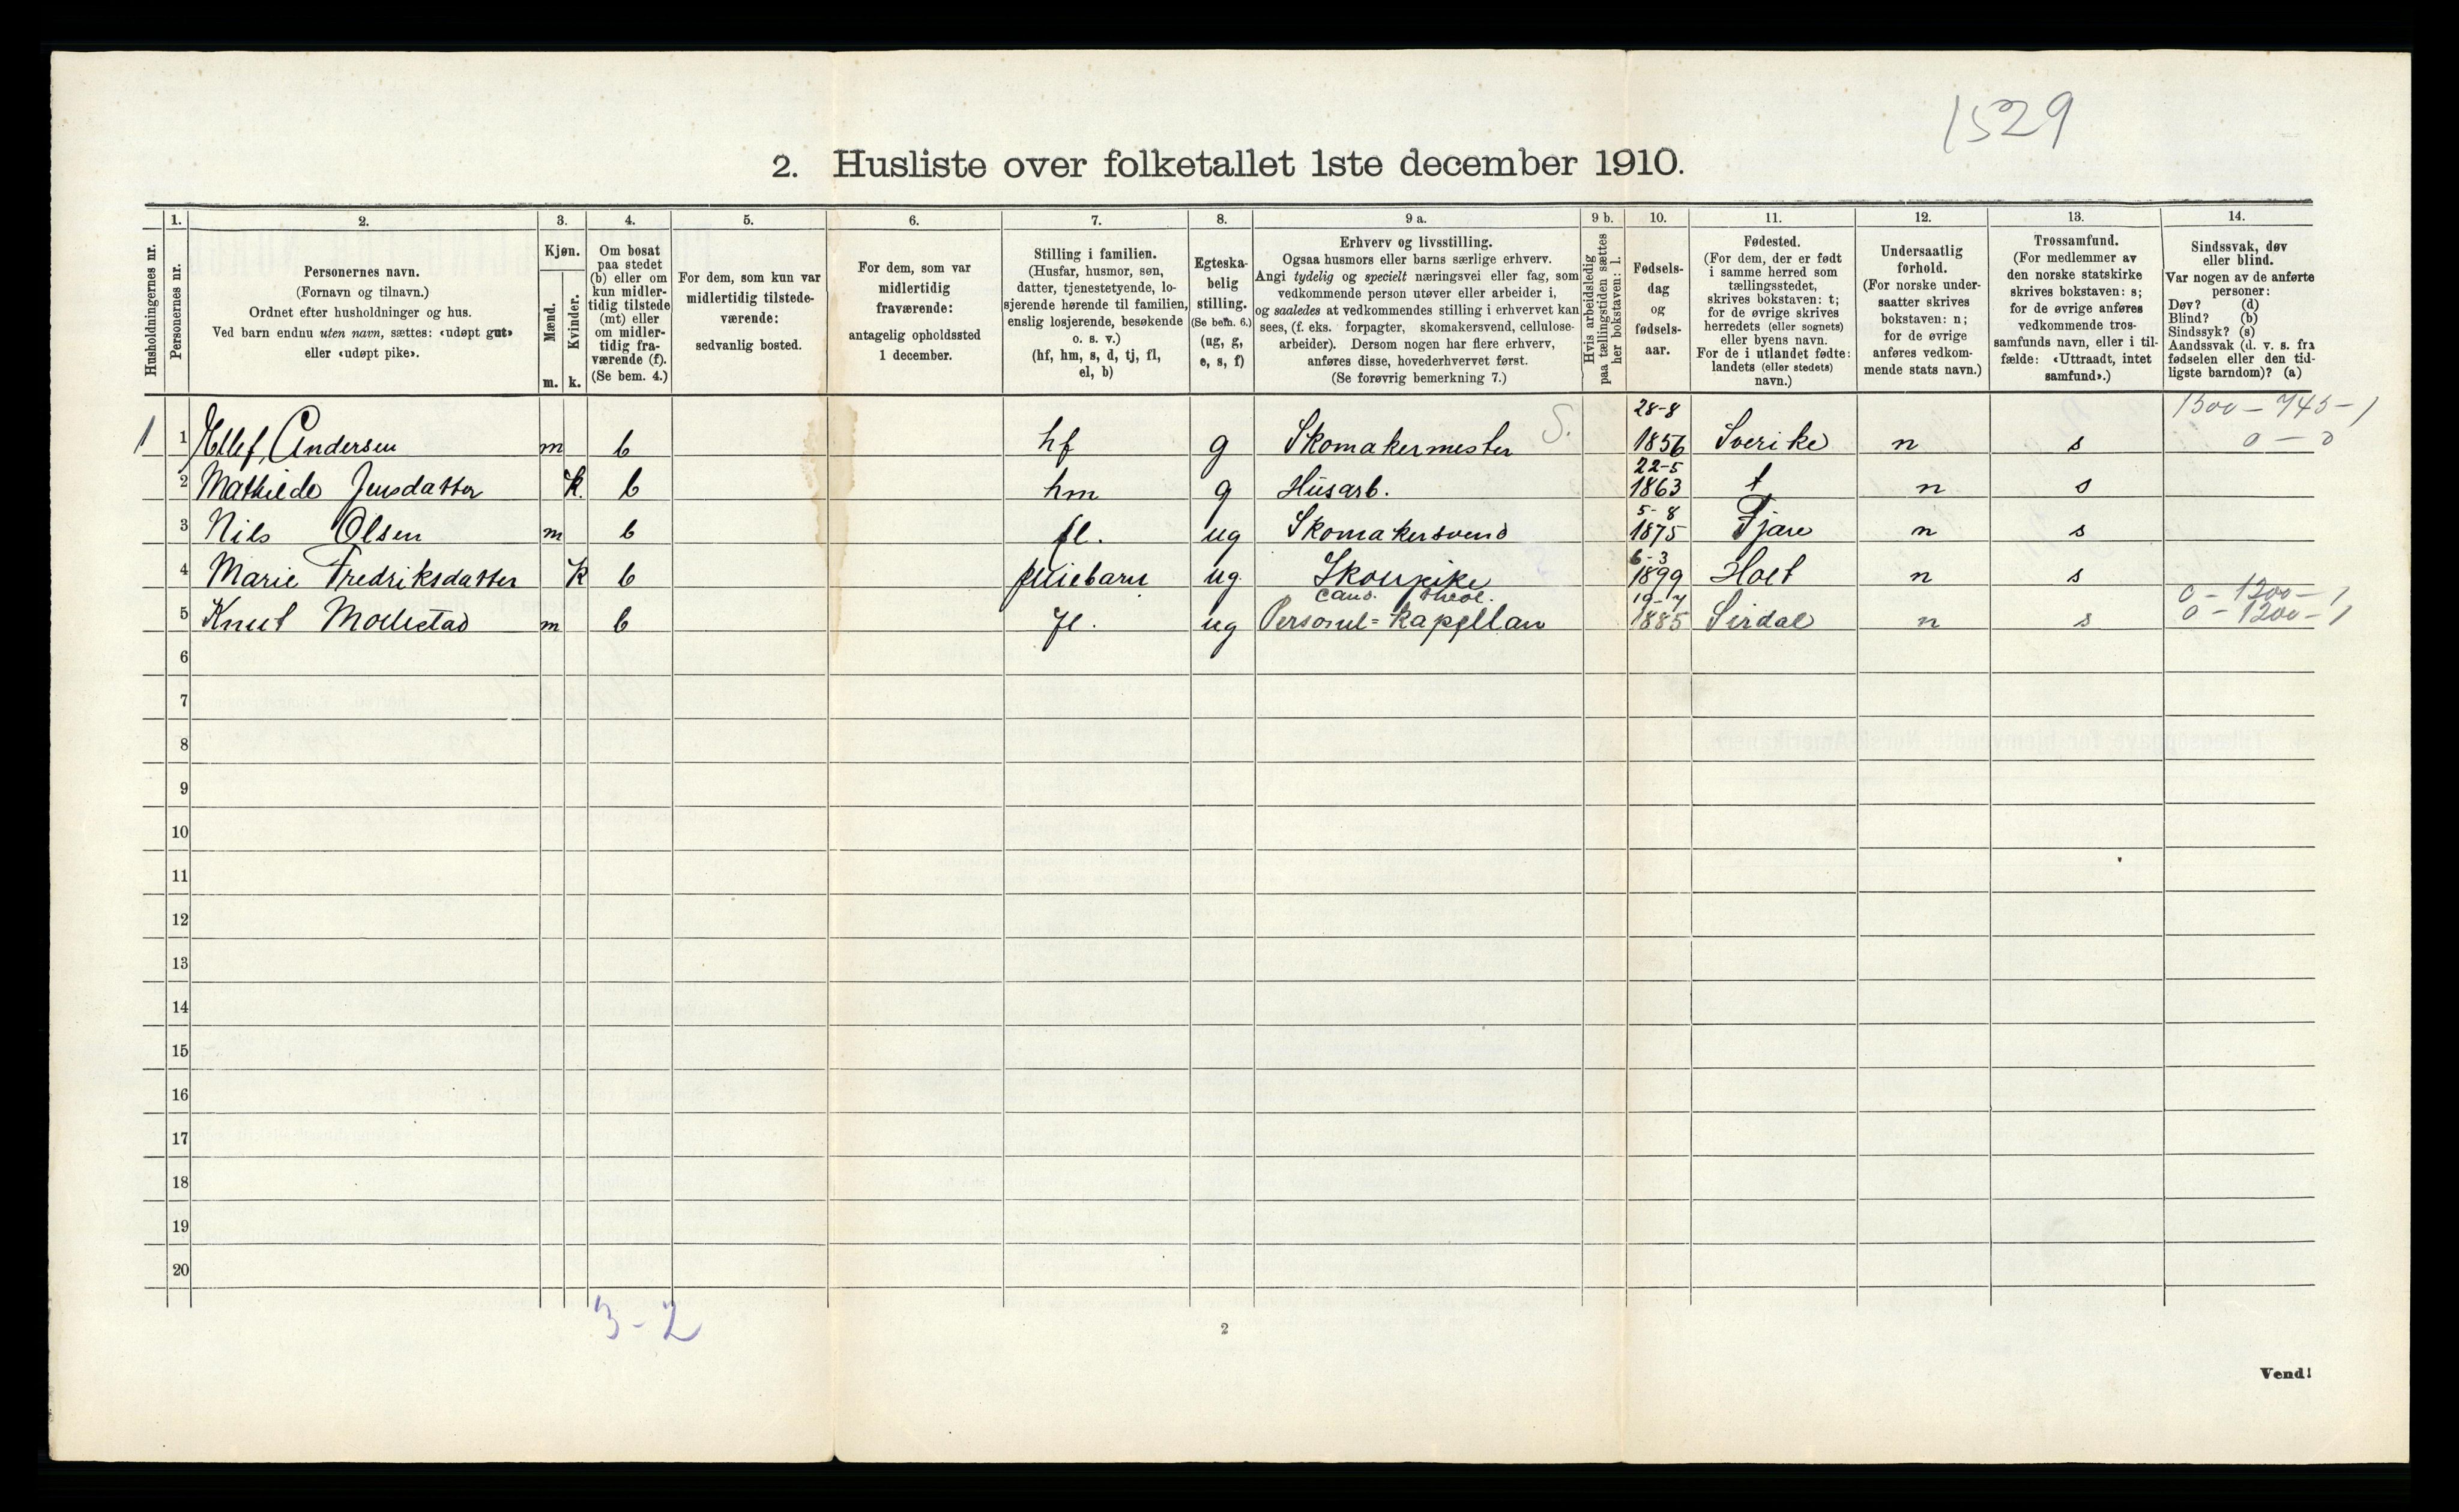 1529
2. Husliste over folketallet 1ste december 1910.
Husholdningernes nr.
1.
Personernes nr.
2.
Personernes navn.
(Fornavn og tilnavn.)
Ordnet efter husholdninger og hus.
Ved barn endnu uten navn, sættes: «udøpt gut»
eller «udøpt pike».
3.
Kjøn.
Mænd.
Kvinder.
m. k.
4.
Om bosat
paa stedet
(b) eller om
kun midler-
tidig tilstede
(mt) eller
om midler-
tidig fra-
værende (f).
(Se bem. 4.)
5.
For dem, som kun var
midlertidig tilstede-
værende:
sedvanlig bosted.
6.
For dem, som var
midlertidig
fraværende:
antagelig opholdssted
1 december.
7.
Stilling i familien.
(Husfar, husmor, søn,
datter, tjenestetyende, lo-
sjerende hørende til familien,
enslig losjerende, besøkende
o. s. v.)
(hf, hm, s, d, tj, fl,
el, b)
8.
Egteska-
belig
stilling.
(Se bem. 6.)
(ug, g,
e, s, f)
9 a.
Erhverv og livsstilling.
Ogsaa husmors eller barns særlige erhverv.
Angi tydelig og specielt næringsvei eller fag, som
vedkommende person utøver eller arbeider i,
og saaledes at vedkommendes stilling i erhvervet kan
sees, (f. eks. forpagter, skomakersvend, cellulose-
arbeider). Dersom nogen har flere erhverv,
anføres disse, hovederhvervet først.
(Se forøvrig bemerkning 7.)
9 b.
Hvis arbeidsledig
paa tællingstiden sættes
her bokstaven: l.
10.
Fødsels-
dag
og
fødsels-
aar.
11.
Fødested.
(For dem, der er født
i samme herred som
tællingsstedet,
skrives bokstaven: t;
for de øvrige skrives
herredets (eller sognets)
eller byens navn.
For de i utlandet fødte:
landets (eller stedets)
navn.)
12.
Undersaatlig
forhold.
(For norske under-
saatter skrives
bokstaven: n;
for de øvrige
anføres vedkom-
mende stats navn.)
13.
Trossamfund.
(For medlemmer av
den norske statskirke
skrives bokstaven: s;
for de øvrige anføres
vedkommende tros-
samfunds navn, eller i til-
fælde: «Uttraadt, intet
samfund».)
14.
Sindssvak, døv
eller blind.
Var nogen av de anførte
personer:
Døv? (d)
Blind? (b)
Sindssyk? (s)
Aandssvak (d. v. s. fra
fødselen eller den tid-
ligste barndom)? (a)
28-8 1500 - 745 - 1
1 1 Ellef Andersen m b hf g Skomakermester S. 1856 Sverike n s 0 - 0
22-5
2 Mathilde Jensdatter k. b hm g Husarb. 1863 t n s
5-8
3 Nils Olsen m b fl. ug Skomakersvend 1875 Fjare n s
6-3
4 Marie Fredriksdatter k b pleiebarn ug Skolepike 1899 Holt n s
cand. theol. 19-7 0 - 1200 - 1
5 Knut m b fl. ug Personel=Kapellan 1885 Sirdal n s 0 - 1200 - 1
6
7
8
9
10
11
12
13
14
15
16
17
18
19
20
3-2
2
Vend!